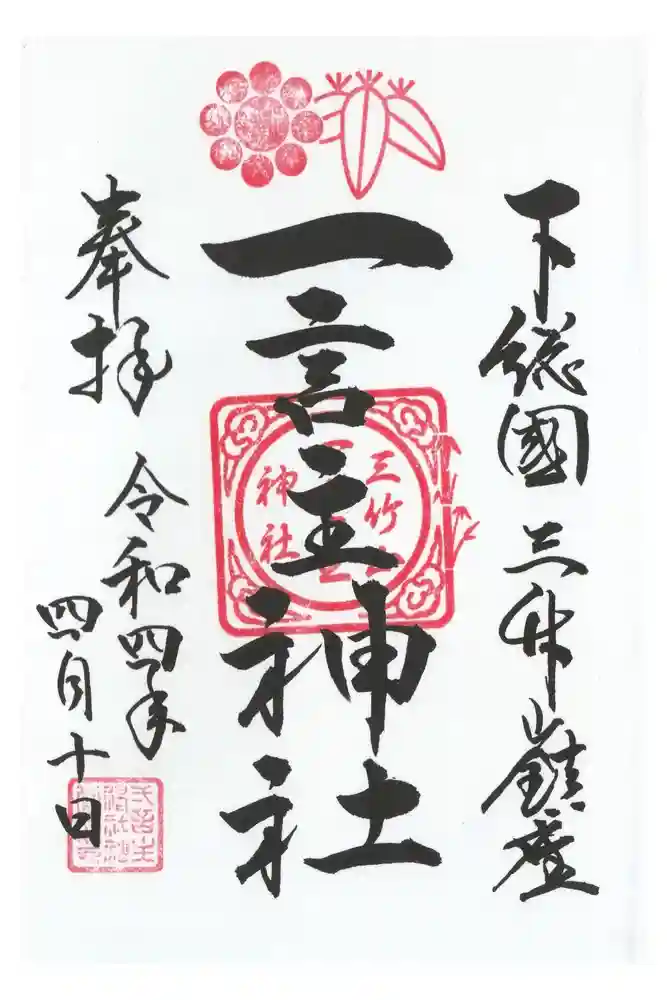 下総國 三竹山鎮座
一言主神社
三竹山
神社
奉拝
令和四年
四月十日